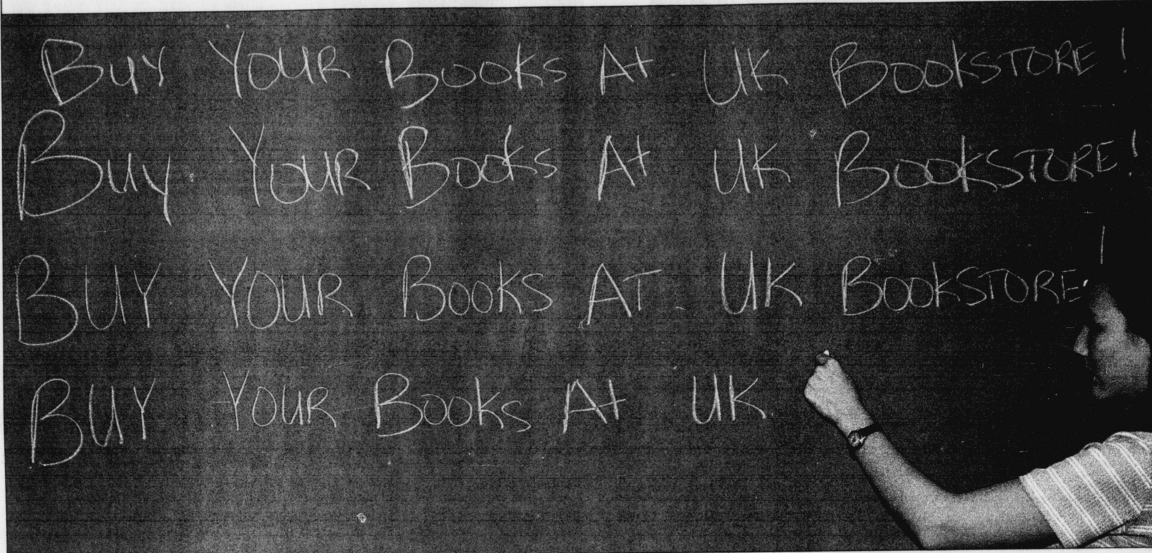 BUY YOUR BOOKS At UK BOOKSTORE!
Buy YOUR Books At UK BOOKSTORE!
BUY YOUR BOOKS AT UK BOOKSTORE!
BUY YOUR BOOKS At UK